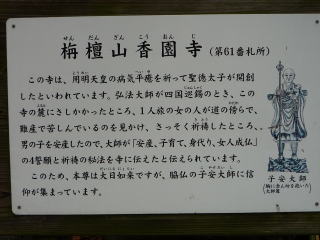 せん だん ざん こう おん じ
栴檀山香園寺（第61番札所）
この寺は、用明天皇の病気平癒を祈って聖徳太子が開創
したといわれています。弘法大師が四国巡錫のとき、この
寺の麓にさしかかったところ、1人旅の女の人が道の傍らで、
難産で苦しんでいるのを見かけ、さっそく祈祷したところ、
男の子を安産したので、大師が「安産、子育て、身代り、女人成仏」
の4誓願と祈祷の秘法を寺に伝えたと伝えられています。
このため、本尊は大日如来ですが、脇仏の子安大師に信
仰が集まっています。
子安大師